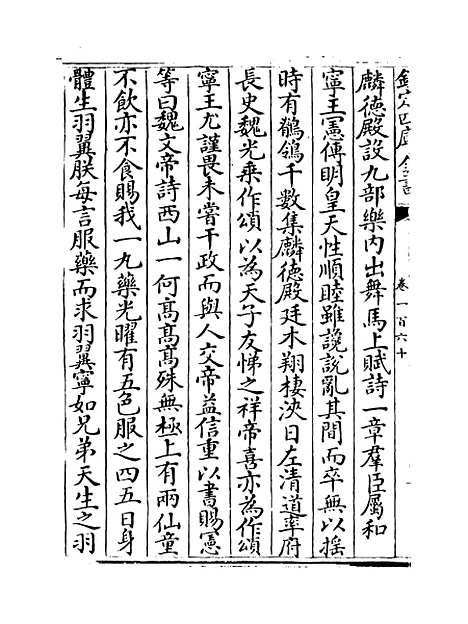 欽定四庫全書
卷一百六十
麟徳殿設九部樂内出舞馬上賦詩一章羣臣屬和
寧王憲傳明皇天性順睦雖讒說亂其間而卒無以揺
時有鶺鴒千數集麟徳殿廷木翔棲浹日左清道率府
長史魏光乗作頌以為天子友悌之祥帝喜亦為作頌
寧王尤謹畏未嘗干政而與人交帝益信重以書賜憲
等曰魏文帝詩西山一何髙髙髙殊無極上有兩仙童
不飲亦不食賜我一丸藥光曜有五色服之四五日身
體生羽翼朕每言服藥而求羽翼寧如兄弟天生之羽